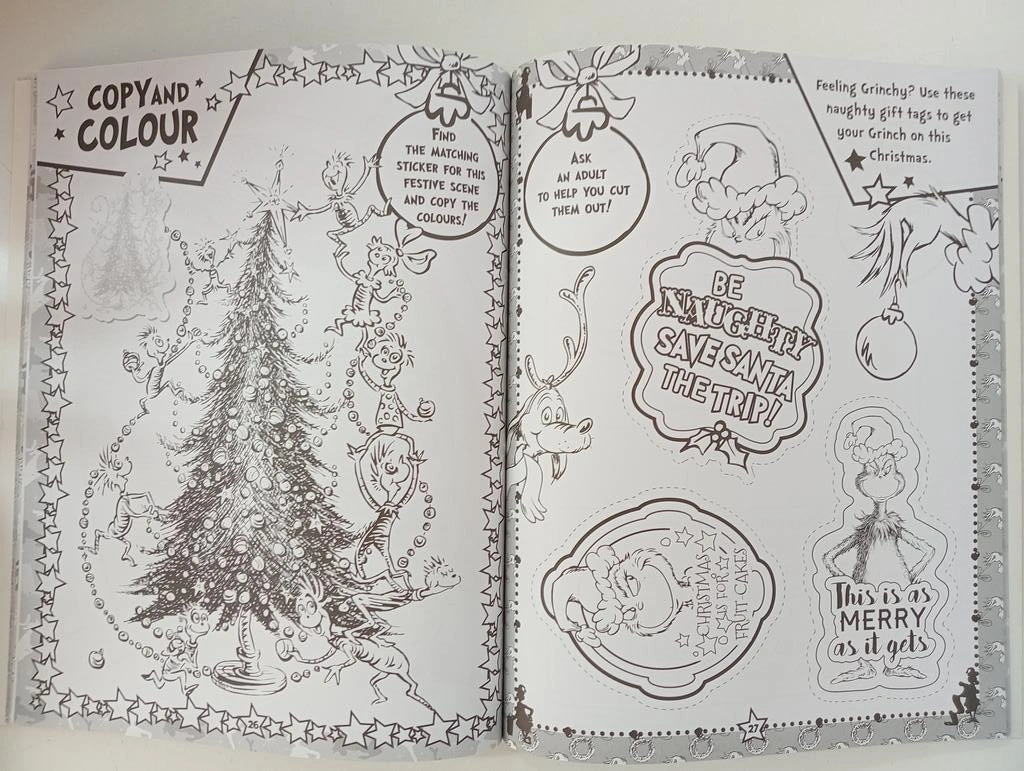 COPY AND
COLOUR
FIND
THE MATCHING
STICKER FOR THIS
FESTIVE SCENE
AND COPY THE
COLOURS!
26
ASK
AN ADULT
TO HELP YOU CUT
THEM OUT!
Feeling Grinchy? Use these
naughty gift tags to get
your Grinch on this
Christmas.
BE
NAUGHTY
SAVE SANTA
THE TRIP!
CHRISTMAS
IS FOR
FRUIT CAKES
This is as
MERRY
as it gets
27